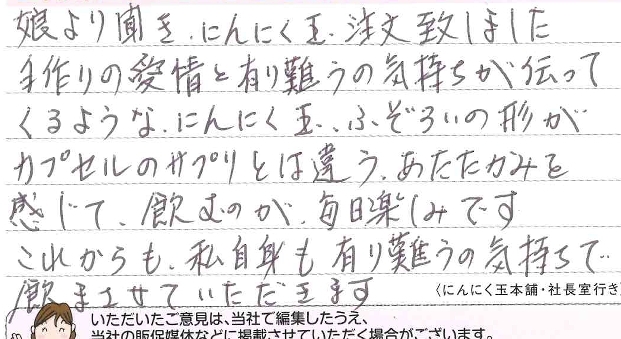 娘より聞き、にんにく玉、注文致しました
手作りの愛情と有り難うの気持ちが伝って
くるような、にんにく玉、ふぞろいの形が
カプセルのサプリとは違う、あたたかみを
感じて、飲むのが、毎日楽しみです
これからも、私自身も有り難うの気持ちで
飲ませていただきます
〈にんにく玉本舗・社長室行き
いただいたご意見は、当社で編集したうえ、
当社の販促媒体などに掲載させていただく場合がございます。